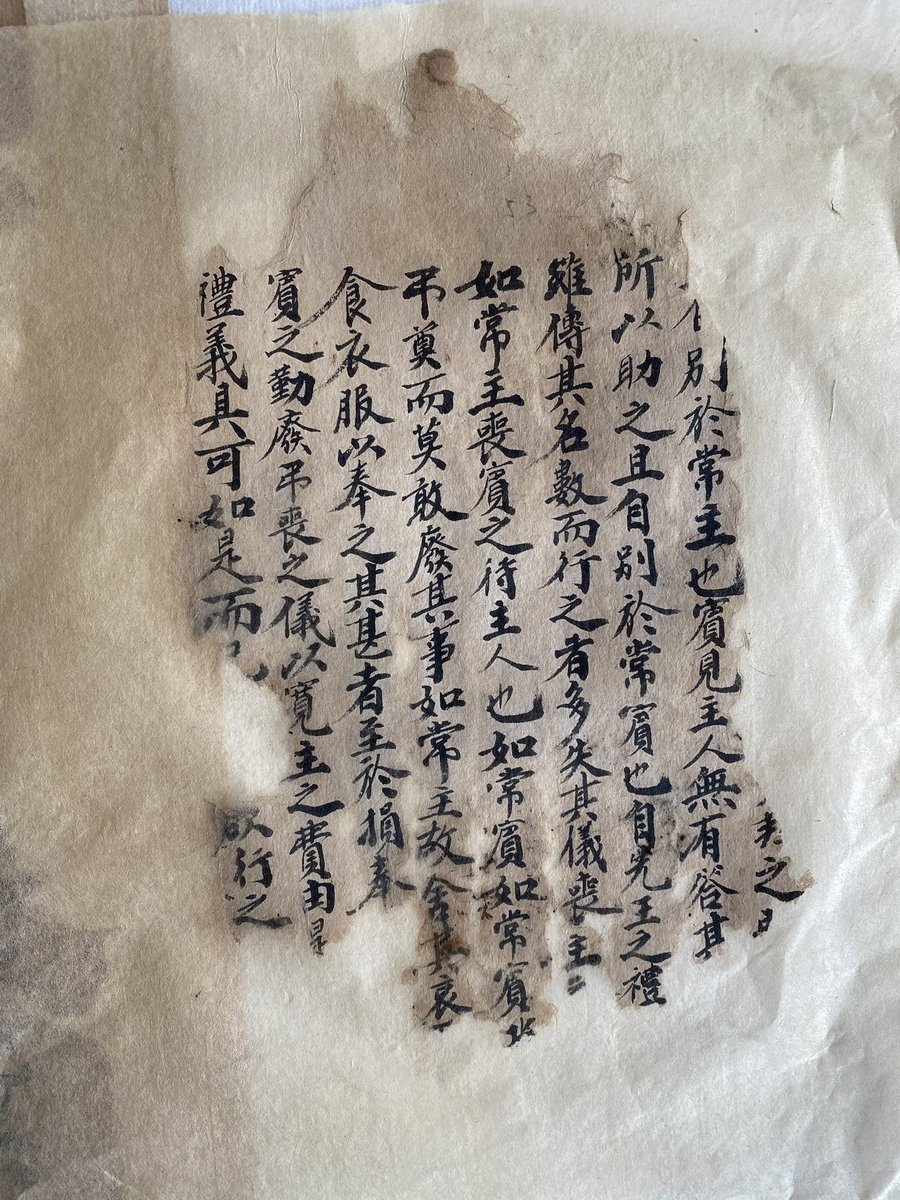 夫之
別於常主也賓見主人無有答其
所以助之且自別於常賓也自先王之禮
雖傳其名數而行之者多失其儀喪主
如常主喪賓之待主人也如常賓如常賓
弔奠而莫敢廢其事如常主故舍其哀
食衣服以奉之其甚者至於損奉
賓之勤廢弔喪之儀以寬主之費由是
禮義具可如是而已 欲行之
153